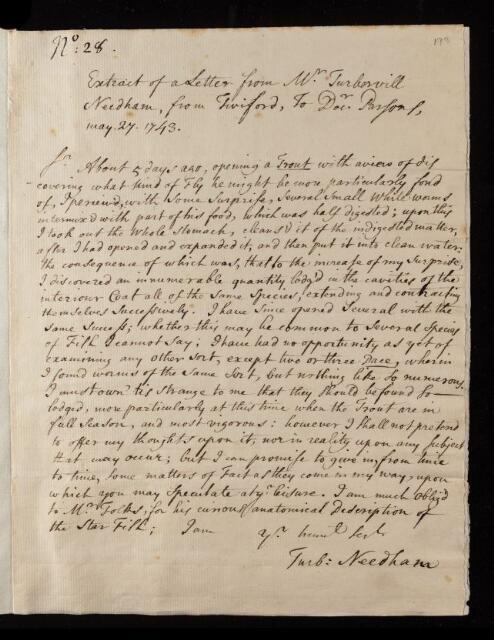 No: 28.
198
Extract of a Letter from Mr. Turbervill
Needham, from Twiford, To Docr. Parsons,
may. 27. 1743.
Sr. About 5 days ago, opening a Trout with a view of dis
covering what kind of Fly he might be more particularly fond
of, I perceiv'd, with Some Surprise, Several Small White worms
intermix'd with part of his food, which was half digested; upon this
I took out the Whole Stomach, cleans'd it of the indigested matter,
after I had opened and expanded it, and then put it into clean water:
the consequence of which was, that to the increase of my Surprise,
I discovered an innumerable quantity lodg'd in the cavities of the
interiour Coat all of the Same Species, extending and contracting
themselves Successively. I have Since opened Several with the
Same Success; whether this may be common to Several Species
of Fish I cannot Say; I have had no opportunity as yet of
examining any other Sort, except two or three Dace, wherein
I found worms of the Same Sort, but nothing like So numerous.
I must own tis strange to me that they Should be found So
lodged, more particularly at this time when the Trout are in
full Season, and most vigorous: however I Shall not pretend
to offer my thoughts upon it, nor in reality upon any Subject
that may occur; but I can promise to give from time
to time, Some matters of Fact as they come in my way upon
which you may Speculate at yr. leisure. I am much Oblig'd
to Mr. for his curious anatomical Description of
the Star Fish; I am yr. hum.
Turb: Needham